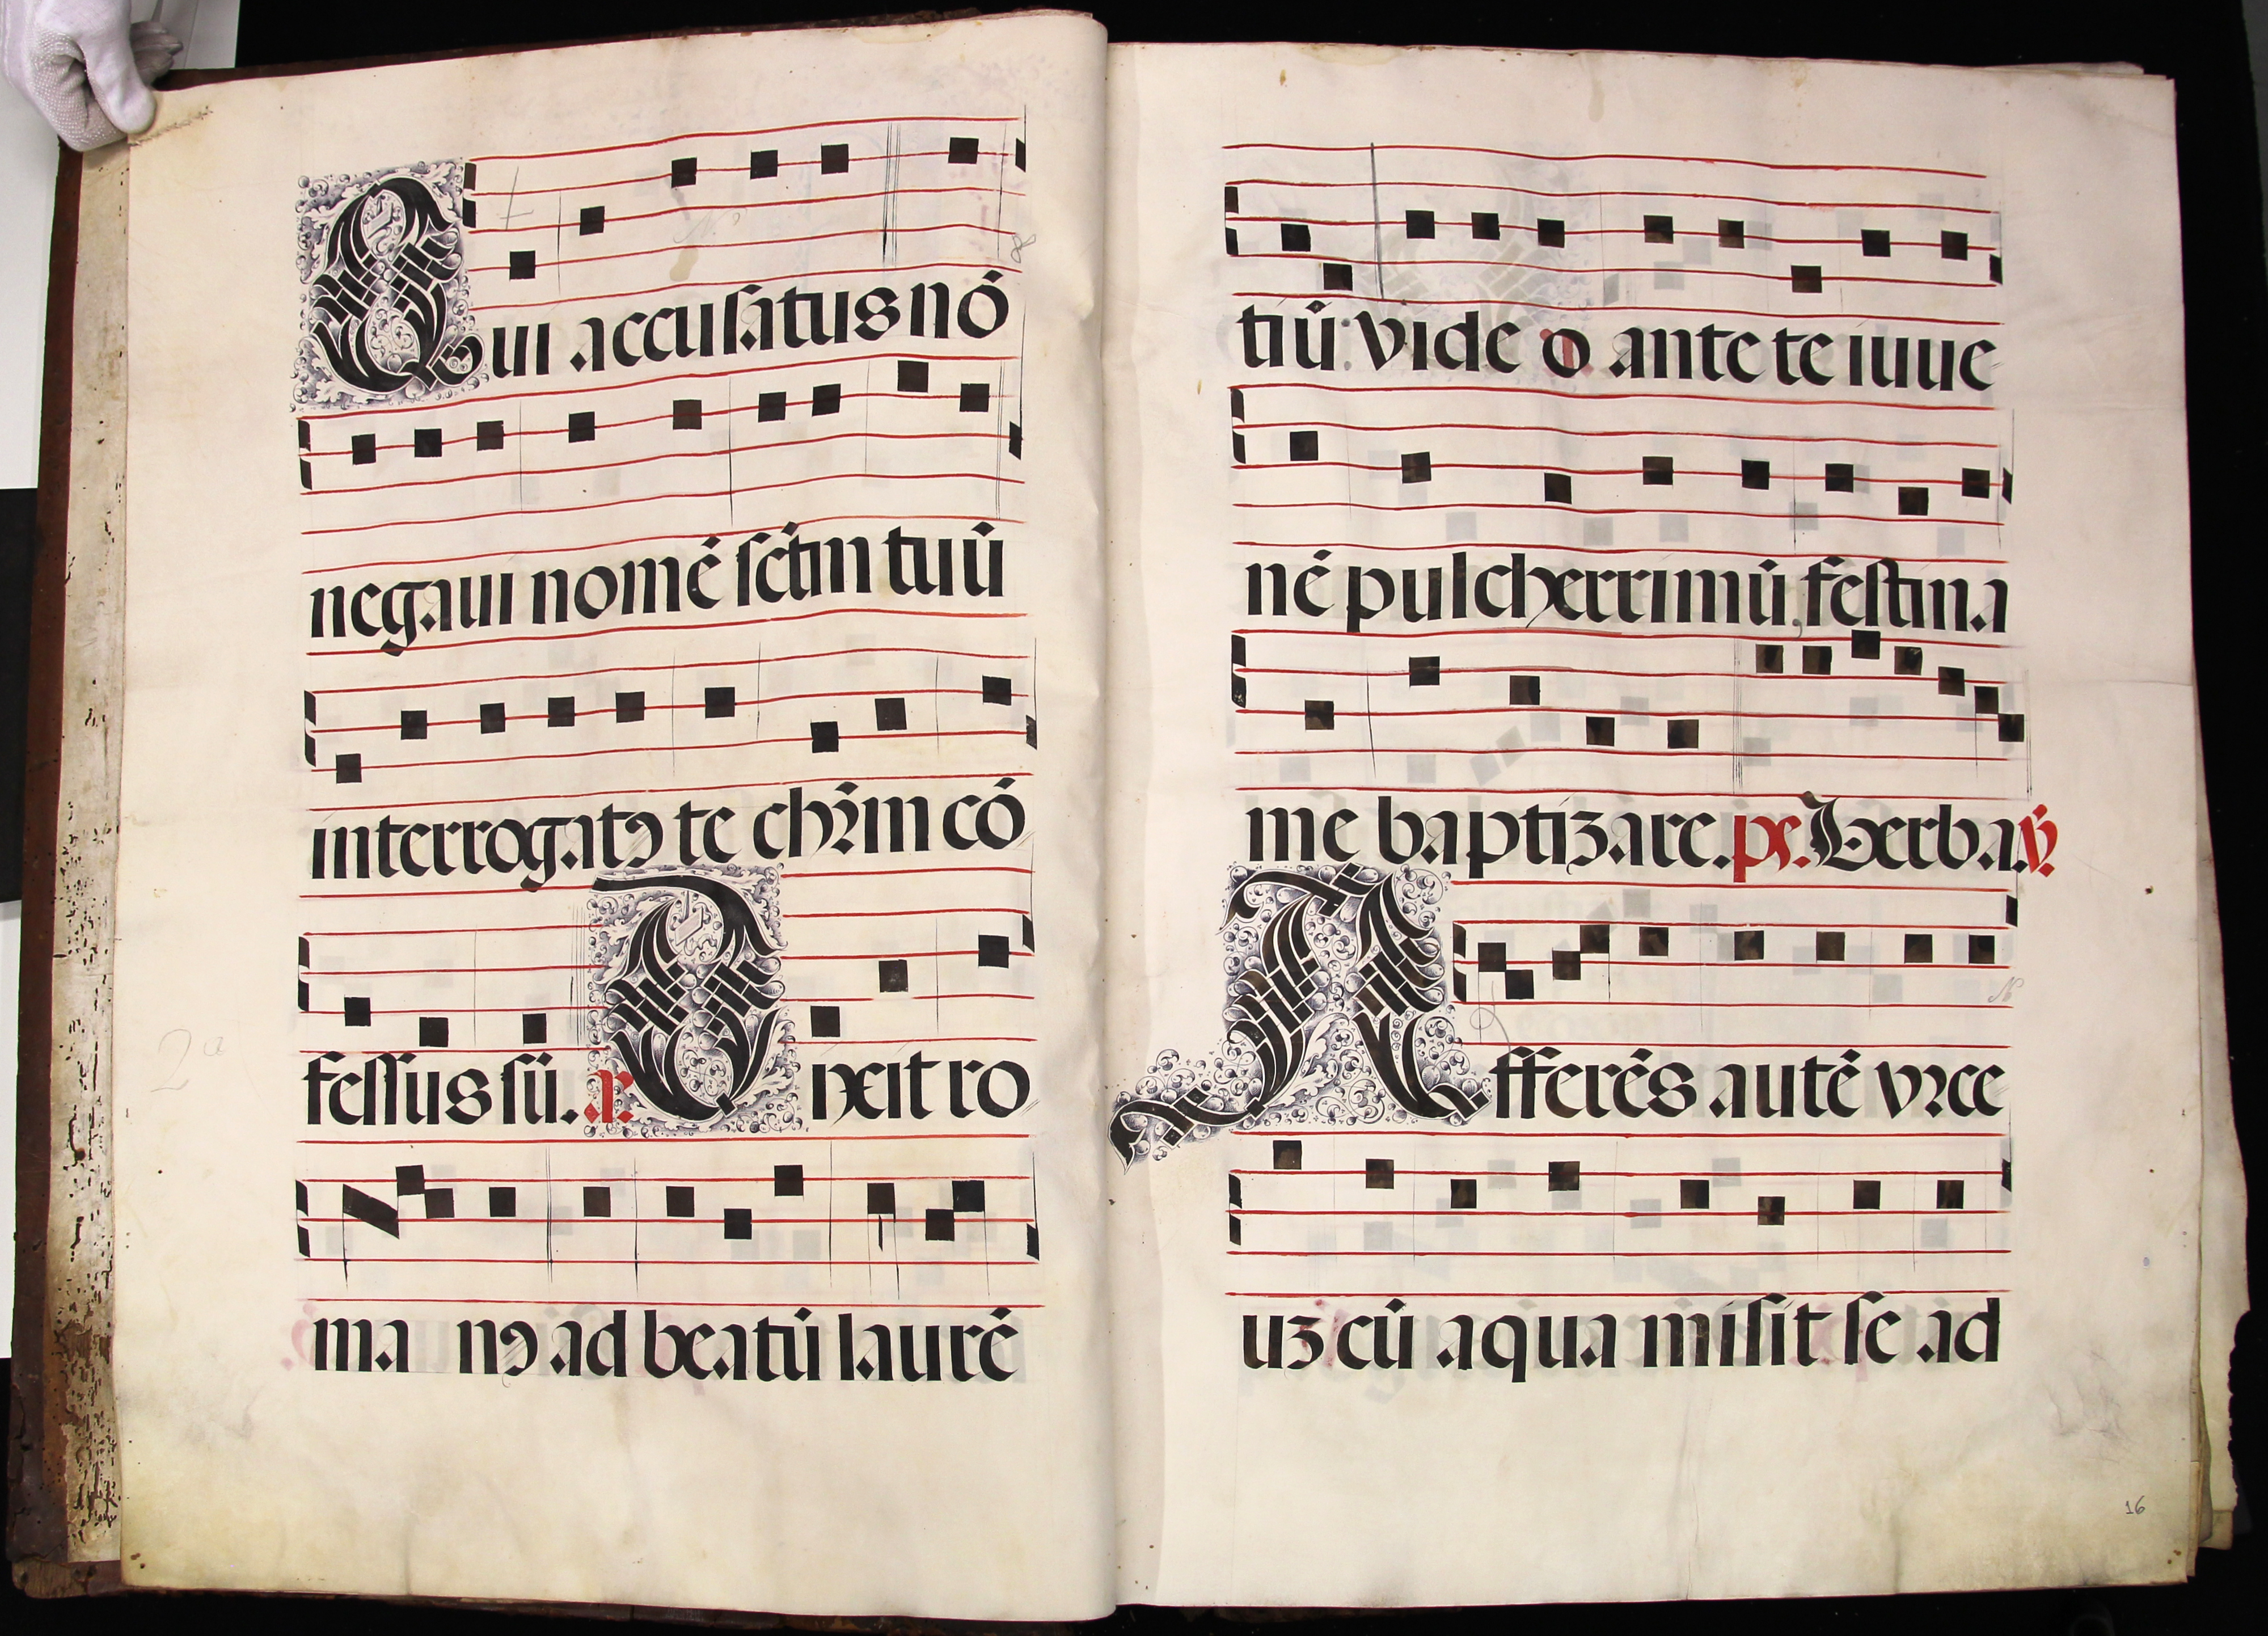 Qui accusatus nō
negaui nomē sctm tuū
interrogatꝯ te chꝛ̄m cō
fessus sū. a. Dixit ro
ma nꝯ ad beatū laurē
2a
tiū: vide o ante te iuue
nē pulcherrimū, festina
me baptizare. ps. Verba. ℣.
Afferēs autē vꝛce
uʒ cū aqua misit se ad
16